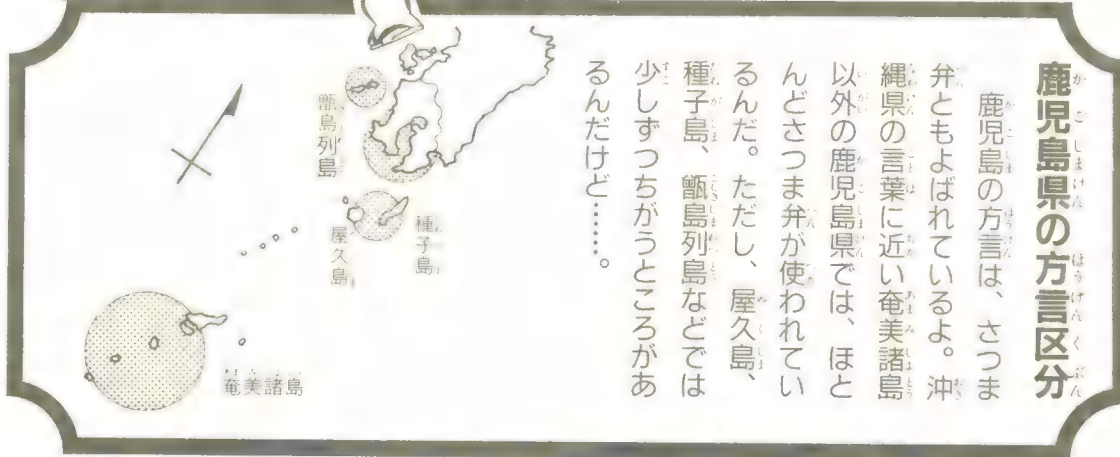 鹿児島県の方言区分
鹿児島の方言は、さつま
弁ともよばれているよ。沖
縄県の言葉に近い奄美諸島
以外の鹿児島県では、ほと
んどさつま弁が使われてい
るんだ。ただし、屋久島、
種子島、甑島列島などでは
少しずつちがうところがあ
るんだけど……。
甑島列島
種子島
屋久島
奄美諸島